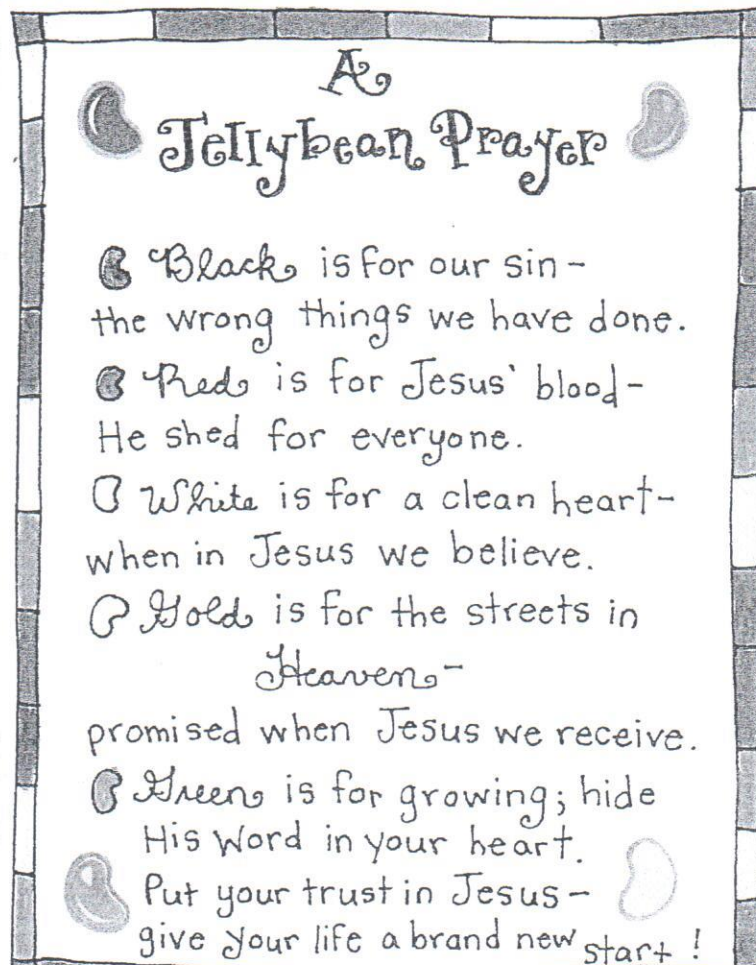 A
Jellybean Prayer
Black is for our sin -
the wrong things we have done.
Red is for Jesus' blood -
He shed for everyone.
White is for a clean heart -
when in Jesus we believe.
Gold is for the streets in
Heaven -
promised when Jesus we receive.
Green is for growing; hide
His Word in your heart.
Put your trust in Jesus -
give your life a brand new start!